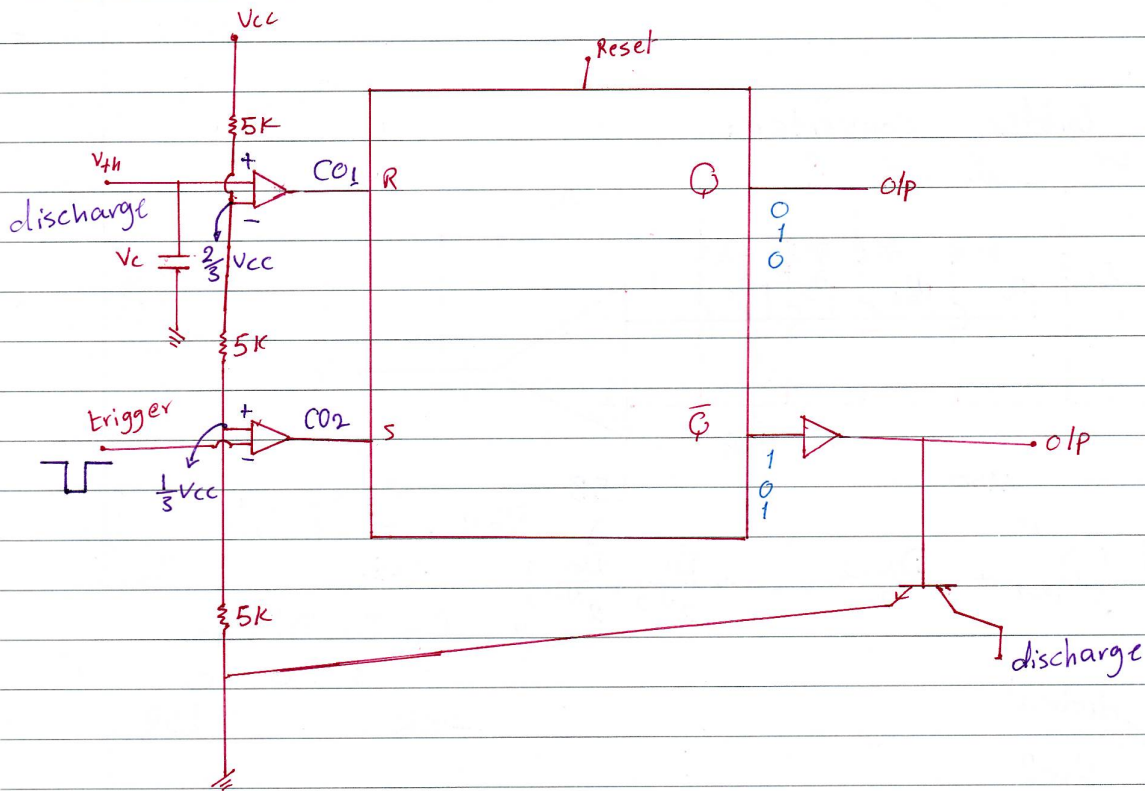 Vcc
Reset
5K
Vth
+
CO1
R
Q
O/P
discharge
−
0
1
0
Vc
2/3 Vcc
5K
trigger
+
CO2
S
Q̅
O/P
−
1/3 Vcc
1
0
1
5K
discharge